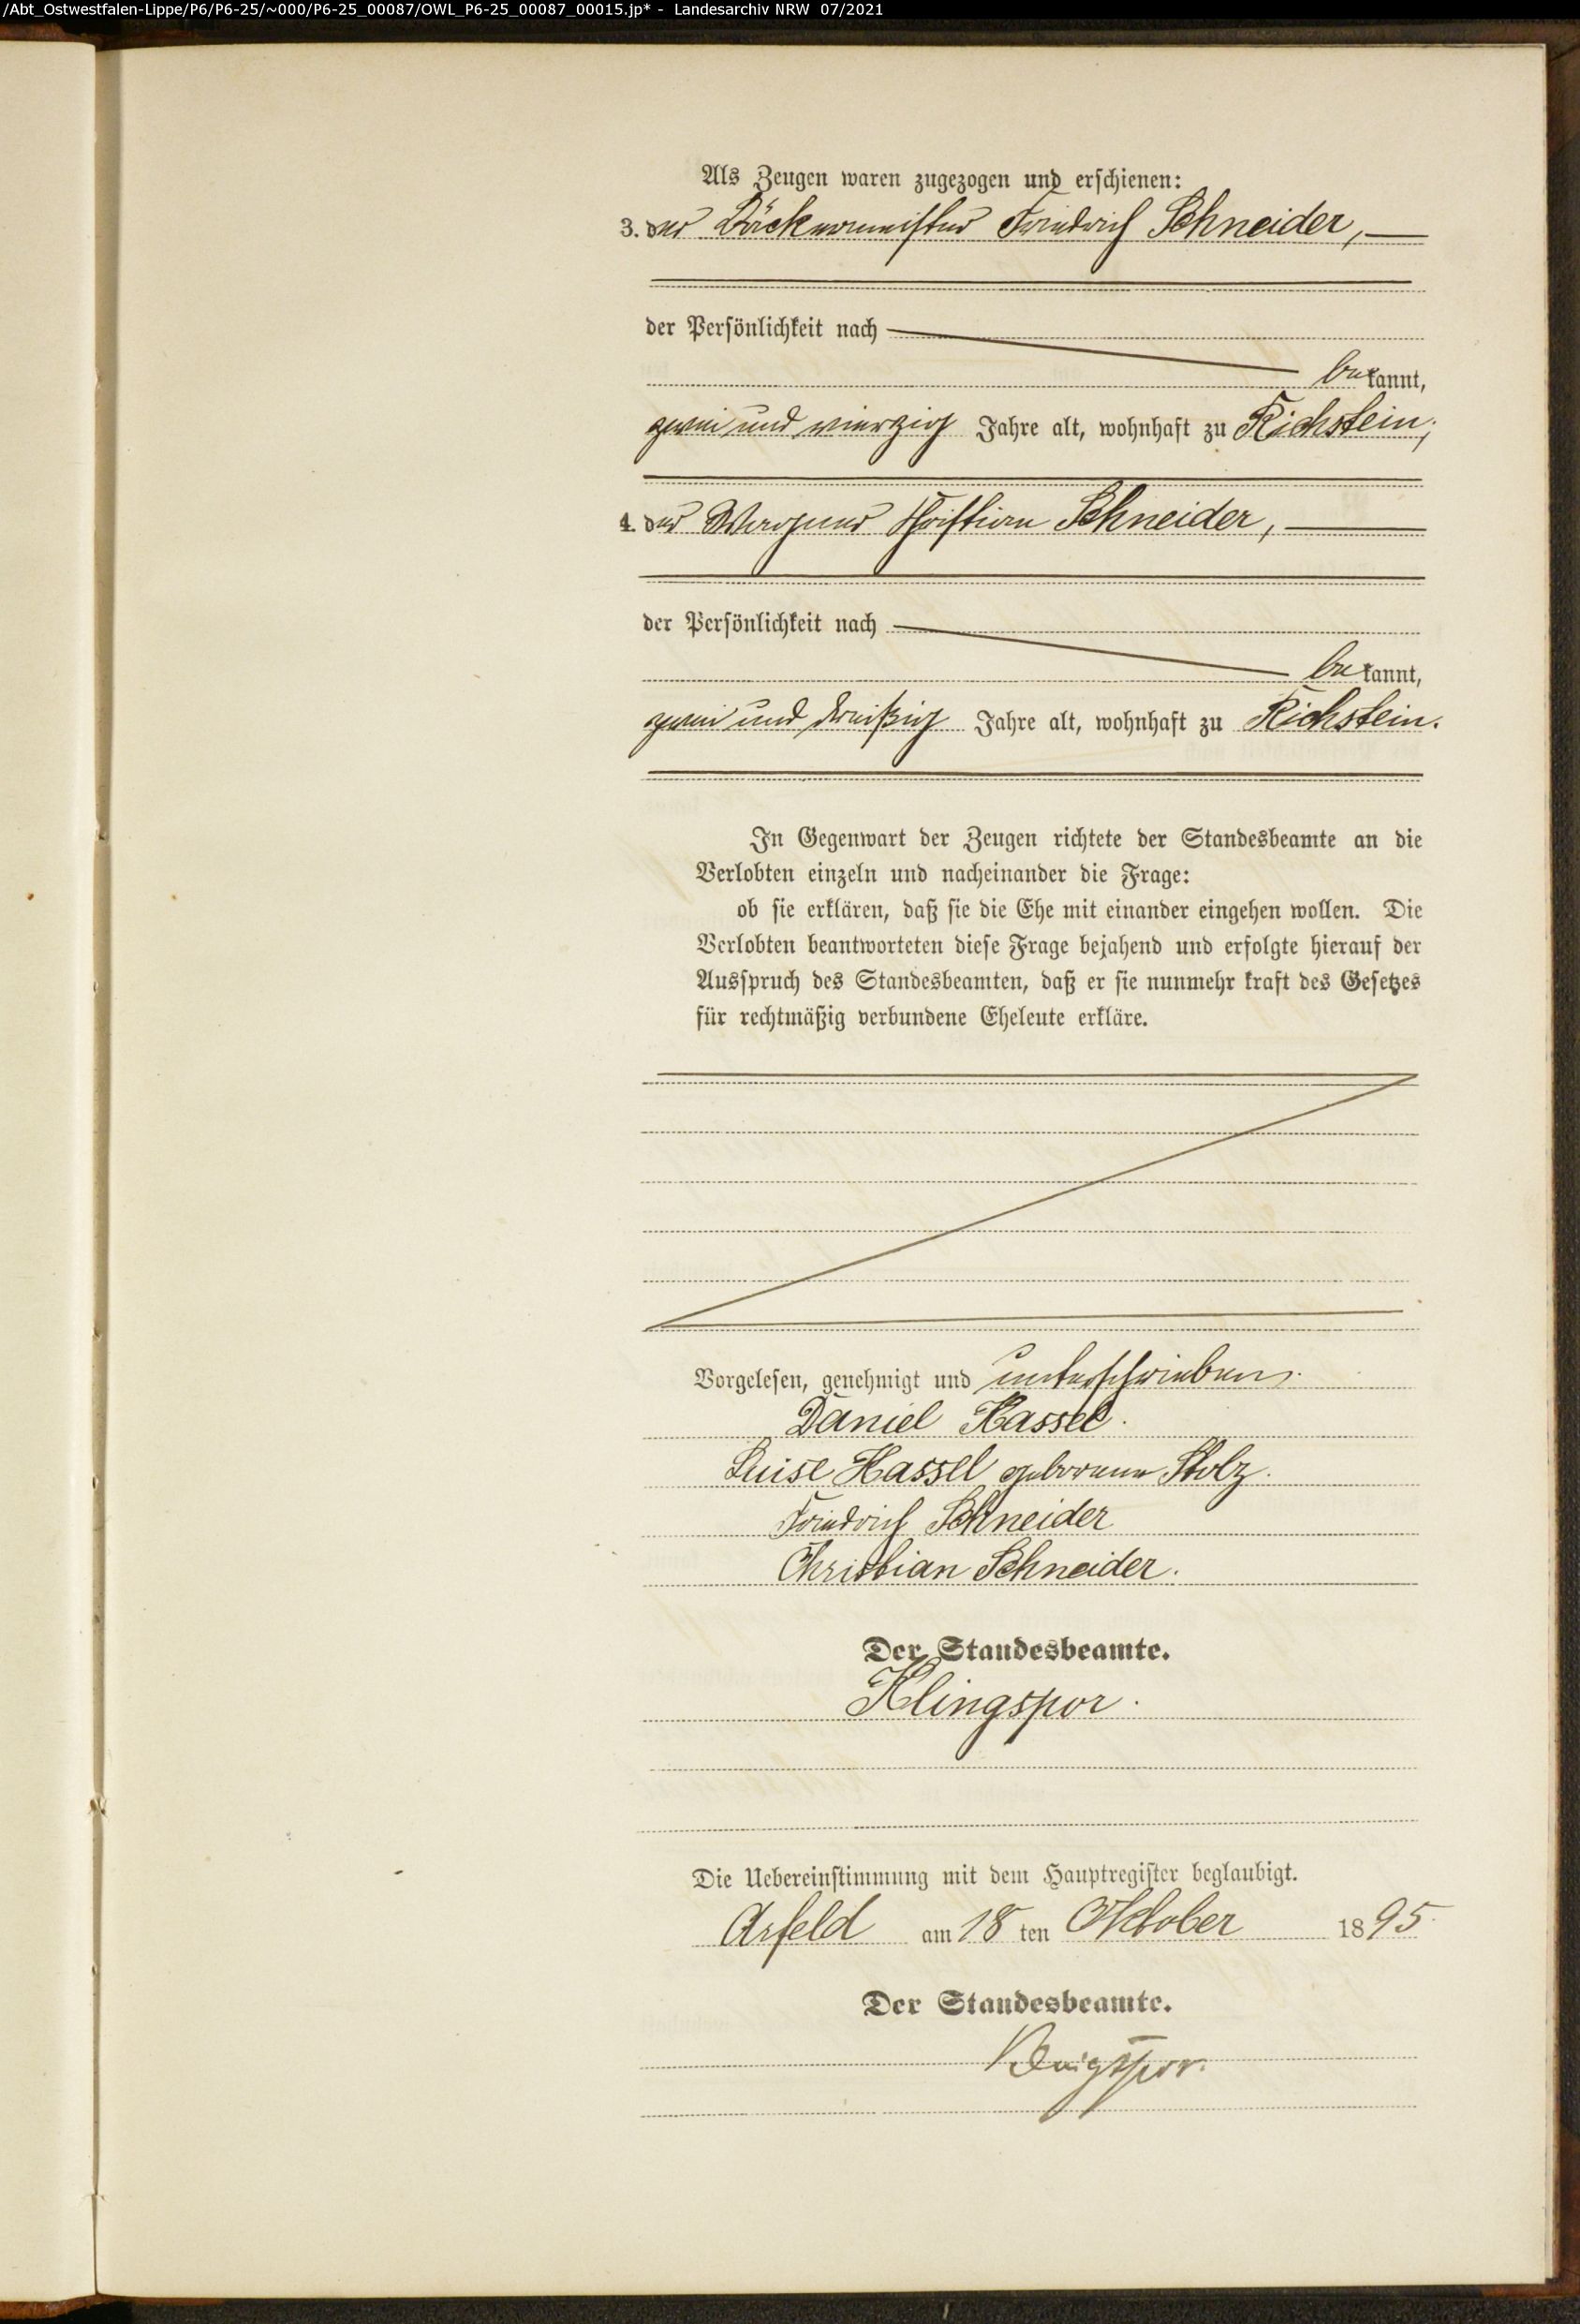 /Abt_Ostwestfalen-Lippe/P6/P6-25/~000/P6-25_00087/OWL_P6-25_00087_00015.jp* - Landesarchiv NRW 07/2021
Als Zeugen waren zugezogen und erschienen:
3. der Bäckermeister Friedrich Schneider,
der Persönlichkeit nach
bekannt,
zwei und vierzig Jahre alt, wohnhaft zu Richstein;
4. der Wagner Christian Schneider,
der Persönlichkeit nach
bekannt,
zwei und dreißig Jahre alt, wohnhaft zu Richstein.
In Gegenwart der Zeugen richtete der Standesbeamte an die
Verlobten einzeln und nacheinander die Frage:
ob sie erklären, daß sie die Ehe mit einander eingehen wollen. Die
Verlobten beantworteten diese Frage bejahend und erfolgte hierauf der
Ausspruch des Standesbeamten, daß er sie nunmehr kraft des Gesetzes
für rechtmäßig verbundene Eheleute erkläre.
Vorgelesen, genehmigt und unterschrieben.
Daniel Hassel.
Luise Hassel geborene Stolz.
Friedrich Schneider
Christian Schneider.
Der Standesbeamte.
Klingspor.
Die Uebereinstimmung mit dem Hauptregister beglaubigt.
Arfeld am 18 ten Oktober 1895.
Der Standesbeamte.
Klingspor.